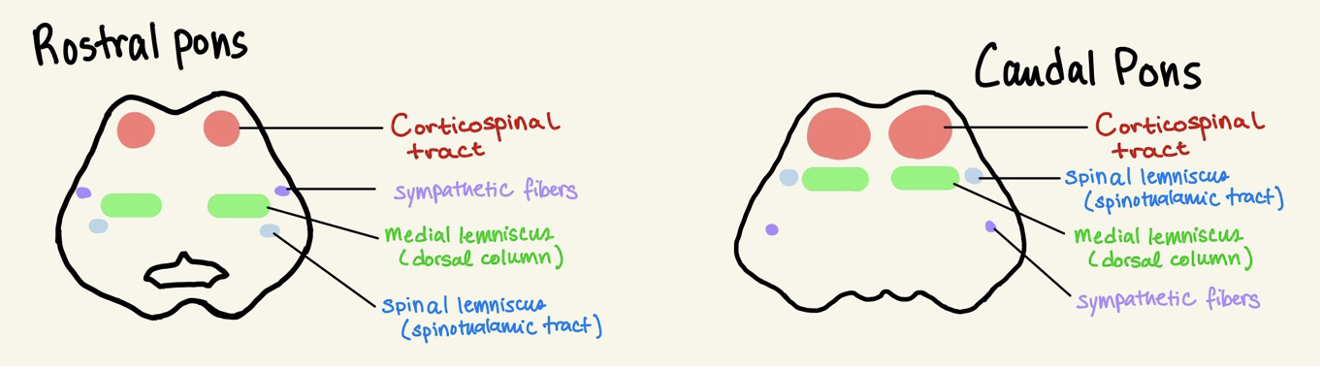 Rostral pons
Corticospinal
tract
sympathetic fibers
Medial lemniscus
(dorsal column)
spinal lemniscus
(spinotualamic tract)
Caudal Pons
Corticospinal
tract
spinal lemniscus
(spinotualamic tract)
Medial lemniscus
(dorsal column)
sympathetic fibers